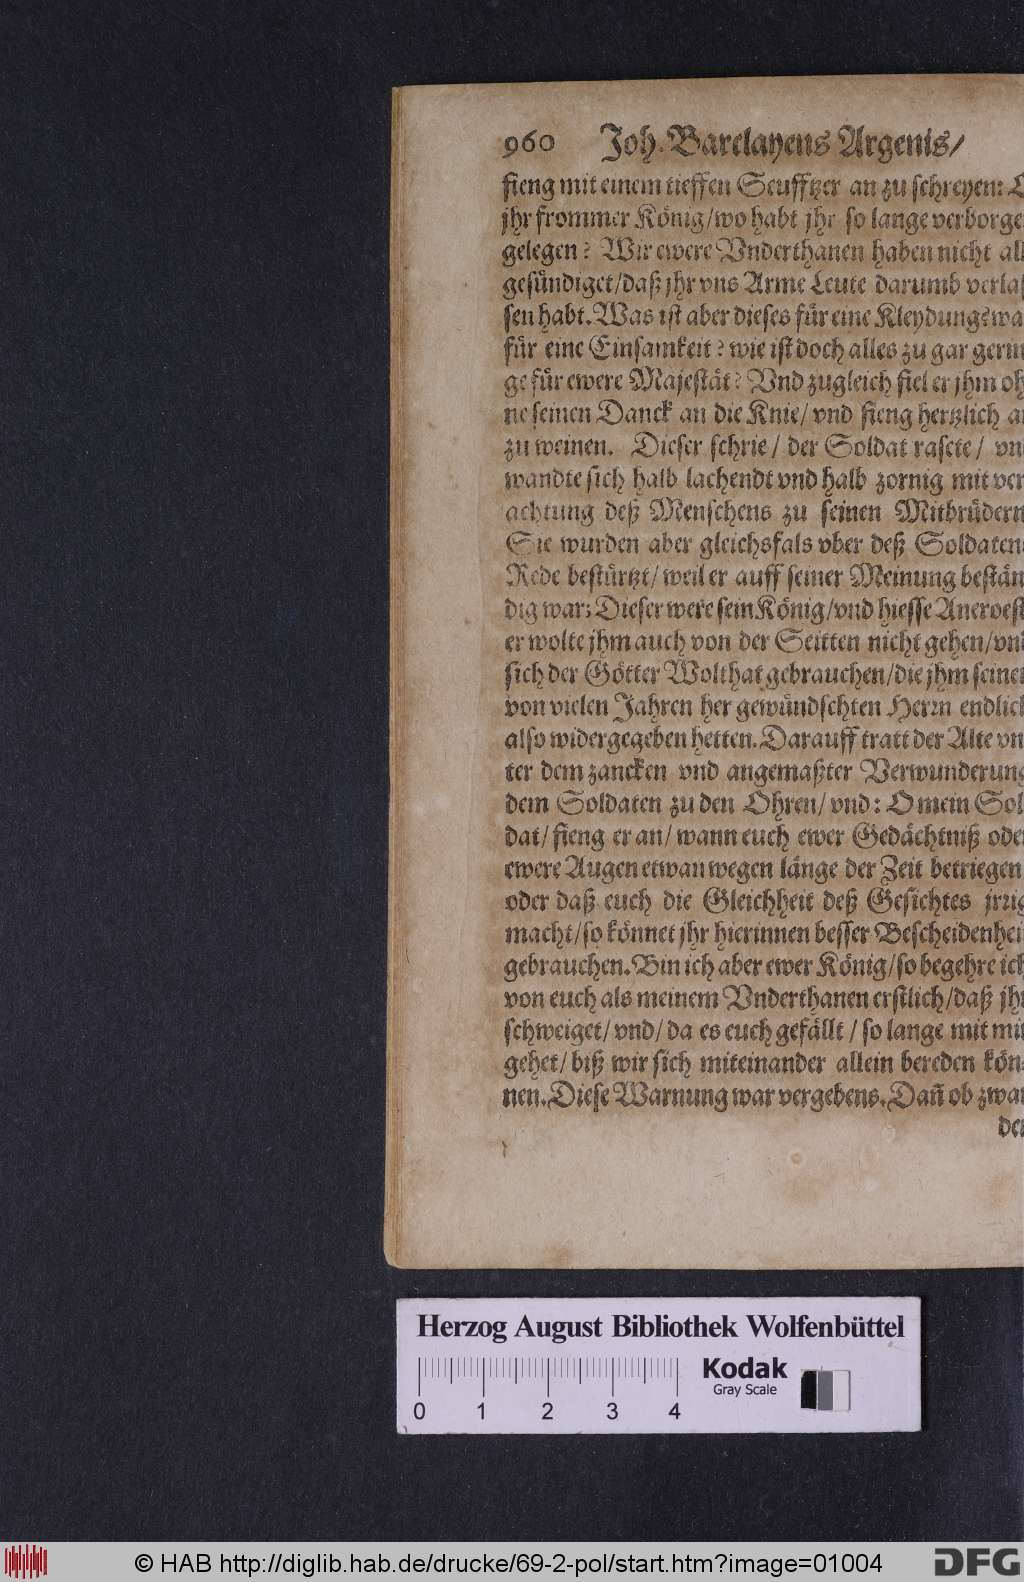 960 Joh. Barclayens Argenis/
fieng mit einem tieffen Seufftzer an zu schreyen: O
jhr frommer König/wo habt jhr so lange verborge
gelegen? Wir ewere Vnderthanen haben nicht all
gesündiget/daß jhr vns Arme Leute darumb verlas
sen habt. Was ist aber dieses für eine Kleydung? wa
für eine Einsamkeit? wie ist doch alles zu gar gerin
ge für ewere Majestät? Vnd zugleich fiel er jhm oh
ne seinen Danck an die Knie/ vnd fieng hertzlich a
zu weinen. Dieser schrie/ der Soldat rasete/ vn
wandte sich halb lachendt vnd halb zornig mit ver
achtung deß Menschens zu seinen Mitbrüdern
Sie wurden aber gleichsfals vber deß Soldaten
Rede bestürtzt/ weil er auff seiner Meinung bestän
dig war: Dieser were sein König/vnd hiesse Aneroest
er wolte jhm auch von der Seitten nicht gehen/vn
sich der Götter Wolthat gebrauchen/die jhm seine
von vielen Jahren her gewündschten Herrn endlich
also widergegeben hetten. Darauff tratt der Alte vn
ter dem zancken vnd angemaßter Verwunderung
dem Soldaten zu den Ohren/ vnd: O mein Sol
dat/ fieng er an/ wann euch ewer Gedächtniß oder
ewere Augen etwan wegen länge der Zeit betriegen
oder daß euch die Gleichheit deß Gesichtes jrrig
macht/so könnet jhr hierinnen besser Bescheidenhei
gebrauchen. Bin ich aber ewer König/so begehre ich
von euch als meinem Vnderthanen erstlich/daß jhr
schweiget/ vnd/ da es euch gefällt/ so lange mit mir
gehet/ biß wir sich miteinander allein bereden kön-
nen. Diese Warnung war vergebens. Dañ ob zwar
der
Herzog August Bibliothek Wolfenbüttel
Kodak
Gray Scale
0 1 2 3 4
© HAB http://diglib.hab.de/drucke/69-2-pol/start.htm?image=01004
DFG